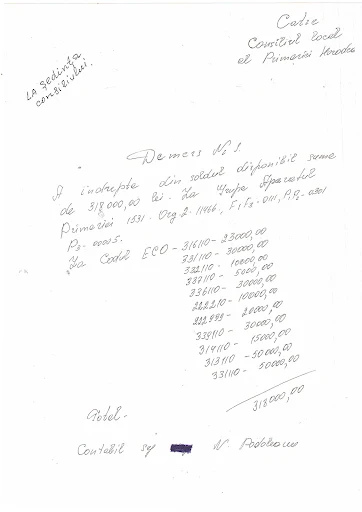 Catre
Consiliul local
al Primariei Horodca
LA ședința
consiliului.
Demers № 1.
A îndrepta din soldul disponibil suma
de 318000,00 lei. La Grupa Aparatul
Primariei 1531. Org 2. 11466, F1F3-0111, P1P2-0301
P3-00005.
La Codul ECO - 316110 - 23000,00
331110 - 30000,00
332110 - 10000,00
337110 - 5000,00
336110 - 30000,00
222210 - 10000,00
222999 - 20000,00
339110 - 30000,00
314110 - 15000,00
313110 - 50000,00
331110 - 50000,00
318000,00
Total -
Contabil șef N.